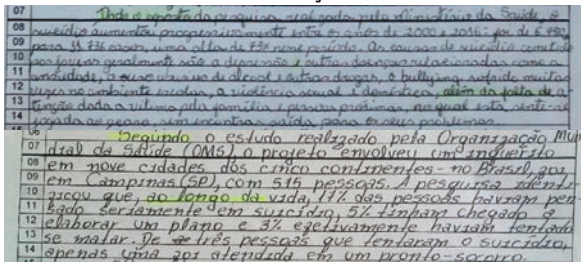 07 Dado o aposto da pesquisa realizada pelo Ministério da Saúde, o
08 suicídio aumentou progressivamente entre os anos de 2000 e 2016: foi de 6.780
09 para 11.736 casos, uma alta de 73% nesse período. As causas de suicídio cometido
10 aos jovens geralmente são a depressão e outras doenças relacionadas como a
11 ansiedade, o uso abusivo de álcool e outras drogas, o bullying sofrido muitas
12 vezes no ambiente escolar, a violência sexual e doméstica, além da falta de a-
13 tenção dada a vítima pela família e pessoas próximas, no qual esta sente-se
14 jogada ao acaso, sem encontrar saída para os seus problemas.
06 Segundo o estudo realizado pela Organização Mun
07 dial da Saúde (OMS), o projeto envolveu um inquérito
08 em nove cidades dos cinco continentes - no Brasil, foi
09 em Campinas (SP), com 515 pessoas. A pesquisa identi-
10 ficou que, ao longo da vida, 17% das pessoas haviam pen-
11 sado seriamente em suicídio, 5% tinham chegado a
12 elaborar um plano e 3% efetivamente haviam tentado
13 se matar. De três pessoas que tentaram o suicídio,
14 apenas uma foi atendida em um pronto-socorro.